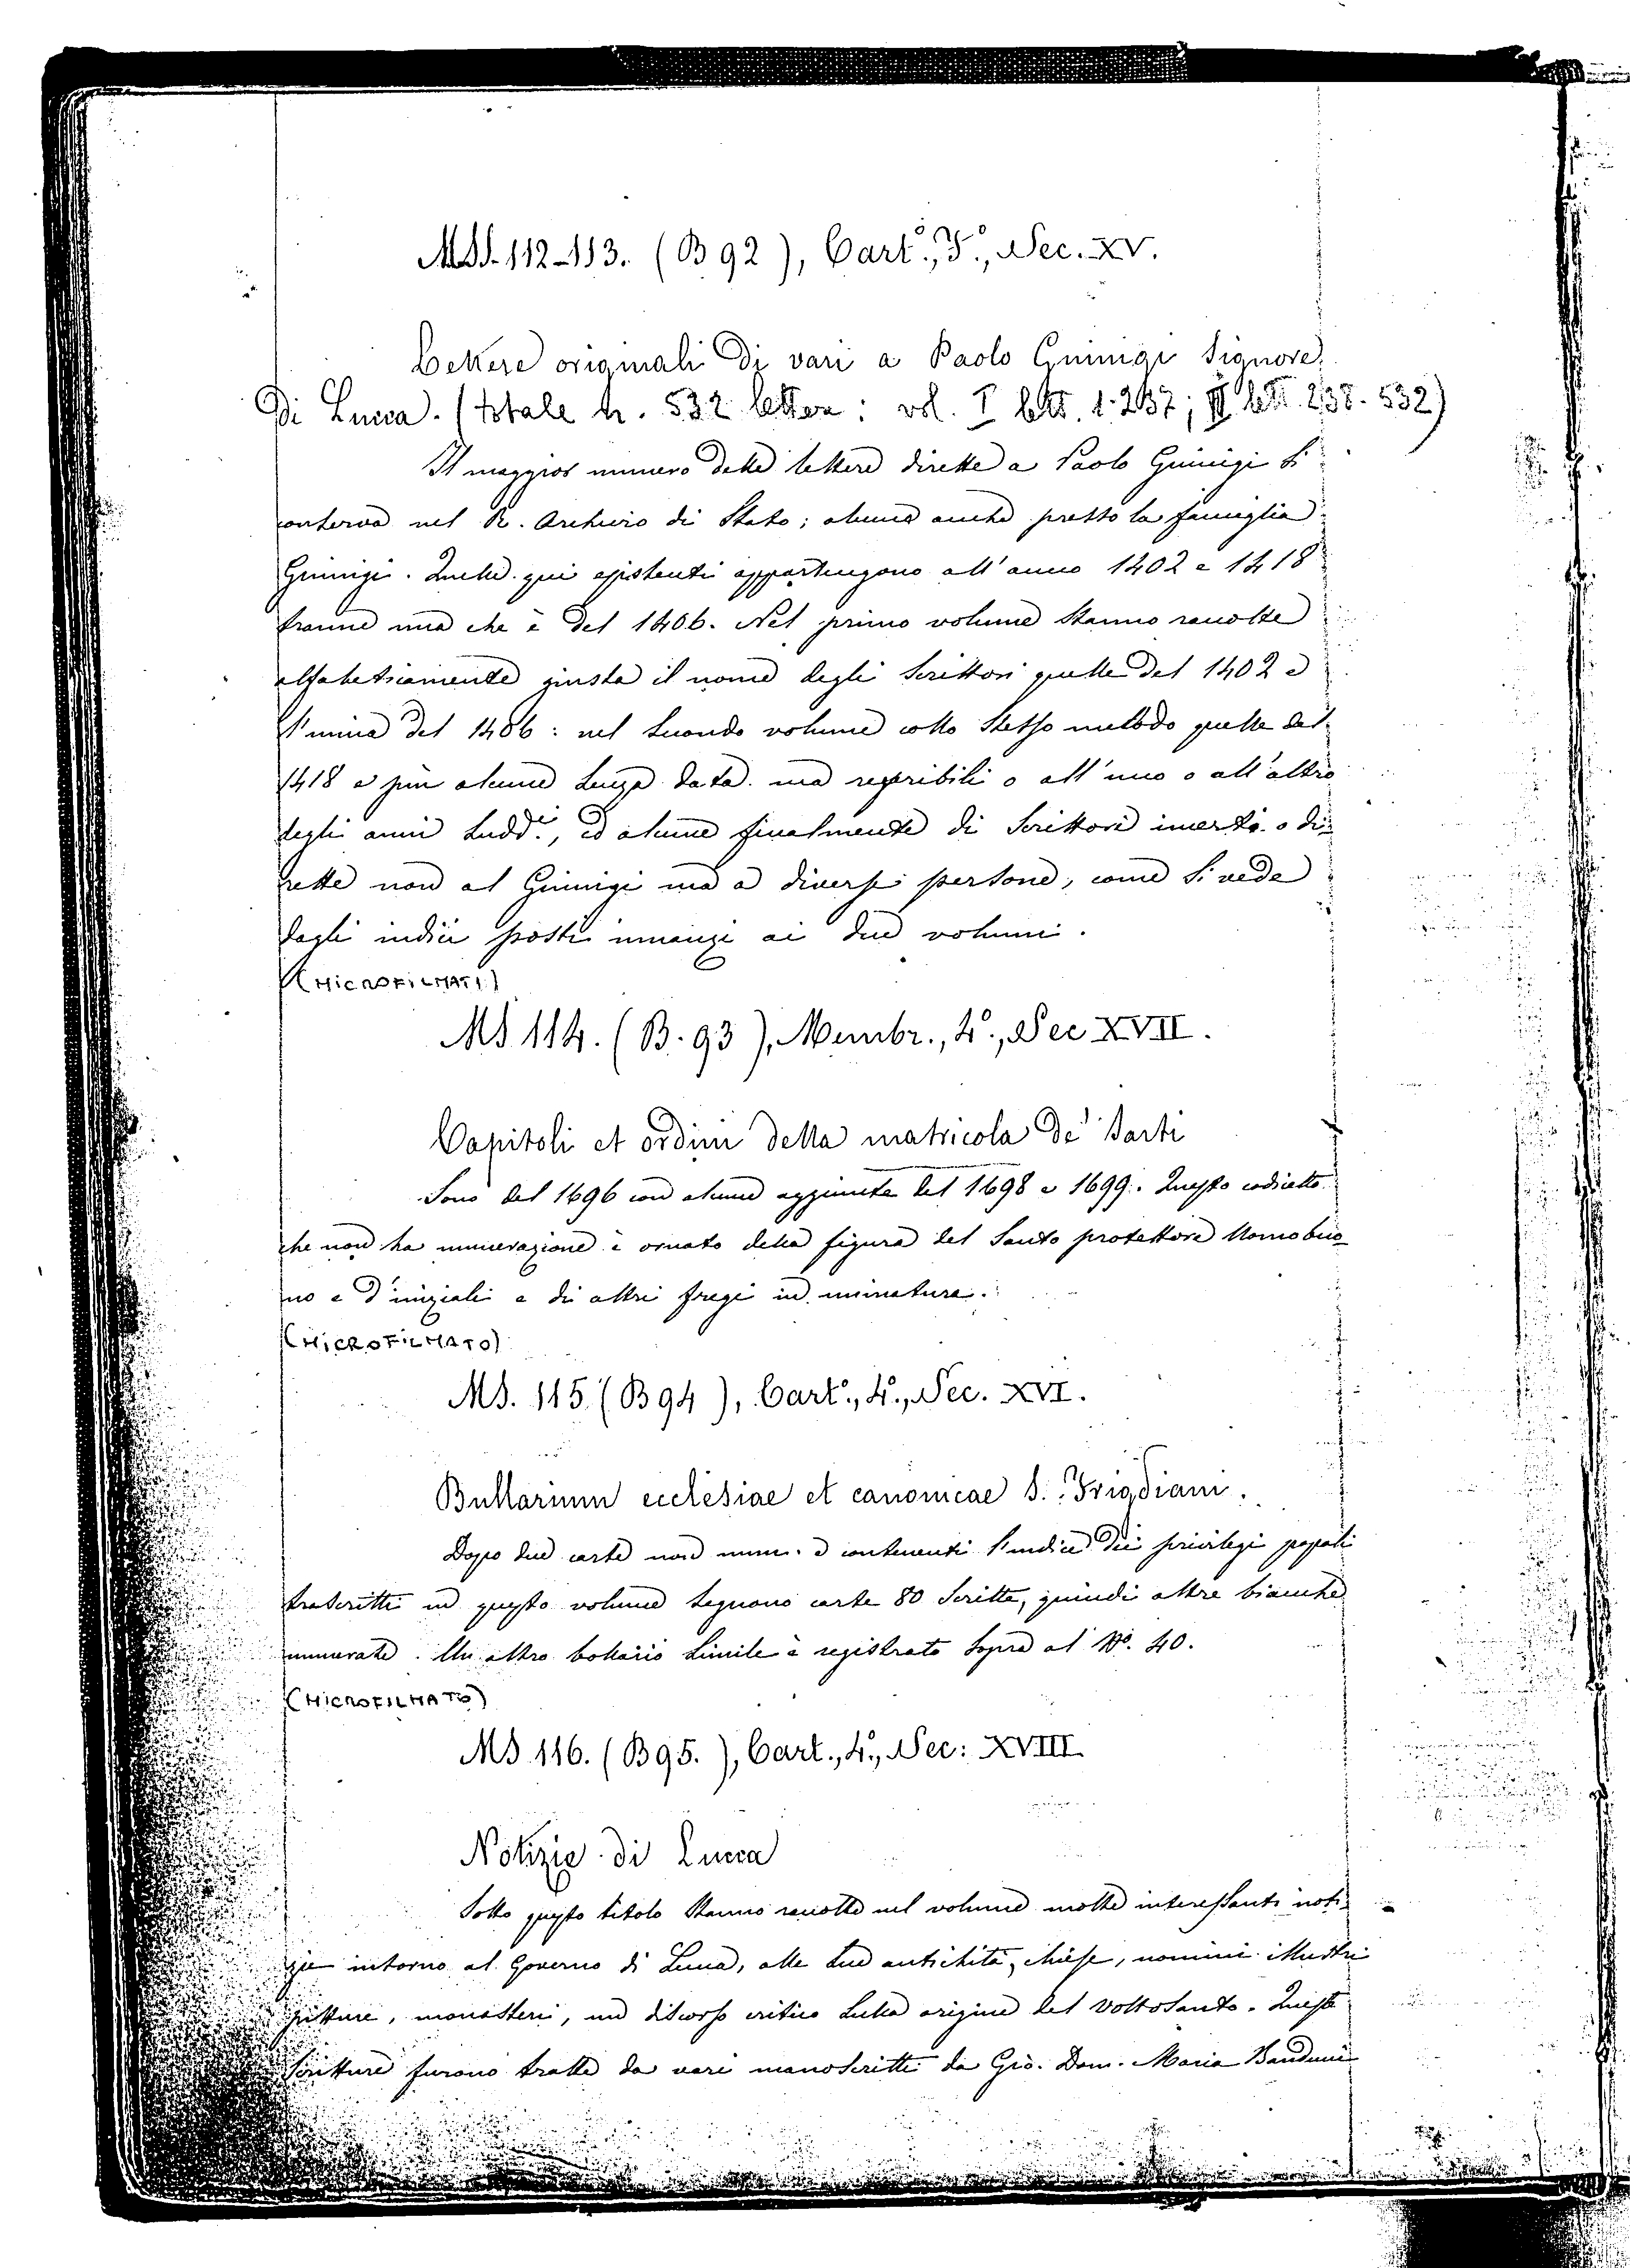 MSS. 112-113. (B 92), Cart.º, F.º, Sec. XV.
Lettere originali di vari a Paolo Guinigi Signore
di Lucca. (totale n. 532 lettere: vol. I lett. 1-237; II lett. 238-532)
Il maggior numero delle lettere dirette a Paolo Guinigi si
conserva nel R. Archivio di Stato; alcune anche presso la famiglia
Guinigi. Quelle qui esistenti appartengono all'anno 1402 e 1418
tranne una che è del 1406. Nel primo volume stanno raccolte
alfabeticamente giusta il nome degli scrittori quelle del 1402 e
l'unica del 1406: nel secondo volume collo stesso metodo quelle del
1418 e più alcune senza data ma referibili o all'uno o all'altro
degli anni sudd.i, ed alcune finalmente di scrittori incerti o di-
rette non al Guinigi ma a diverse persone, come si vede
dagli indici posti innanzi ai due volumi.
(MICROFILMATI)
MS 114. (B. 93), Membr., 4º, Sec XVII.
Capitoli et ordini della matricola de' Sarti
Sono del 1696 con alcune aggiunte del 1698 e 1699. Questo codicetto
che non ha numerazione è ornato della figura del Santo protettore Uomobuo-
no e d'iniziali e di altri fregi in miniatura.
(MICROFILMATO)
MS. 115 (B 94), Cart.º, 4º, Sec. XVI.
Bullarium ecclesiae et canonicae S. Frigdiani.
Dopo due carte non num. e contenenti l'indice dei privilegi papali
trascritti in questo volume seguono carte 80 scritte, quindi altre bianche
numerate. Un altro bollario simile è registrato sopra al Nº. 40.
(MICROFILMATO)
MS 116. (B 95.), Cart., 4º, Sec: XVIII
Notizie di Lucca
Sotto questo titolo stanno raccolte nel volume molte interessanti noti-
zie intorno al Governo di Lucca, alle sue antichità, chiese, uomini illustri
pitture, monasteri, un discorso critico sulla origine del Voltosanto. Queste
scritture furono tratte da vari manoscritti da Gio. Dom. Maria Banduni